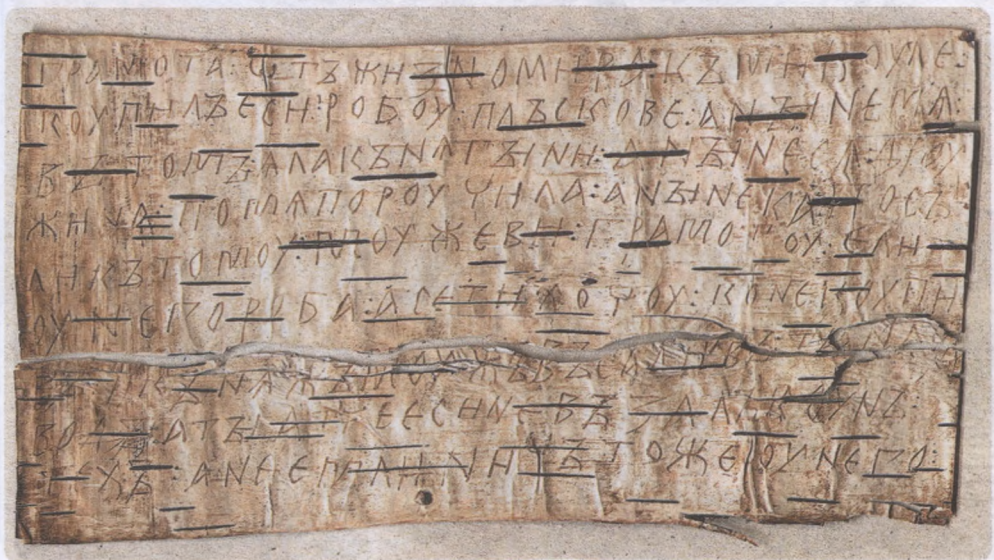 ГРАМОТА : ѠТЪ ЖИЗНОМИРА : КЪ МИКОУЛЕ :
КОУПИЛЪ ЕСИ : РОБОУ : ПЛЪСКОВЕ : А НЫНЕ МѦ :
ВЪ ТОМЪ : ѦЛА КЪНѦГЫНИ : А НЫНЕ СѦ ДРОУ
ЖИНА : ПО МѦ ПОРОУЧИЛА : А НЫНЕ КА : ПОСЪ
ЛИ КЪ ТОМОУ : МОУЖЕВИ : ГРАМОТОУ : ЕЛИ
ОУ НЕГО РОБА : А СЕ ТИ ХОЧОУ : КОНЕ КОУПИ
ВЪ : И КЪНѦЖЪ МОУЖЪ ВЪСАДИВЪ : ТА НА СЪ
ВОДЫ : А ТЫ АТЧЕ ЕСИ НЕ ВЪЗАЛЪ КОУНЪ :
ТЕХЪ : А НЕ ЕМЛИ : НИЧЪТО ЖЕ ОУ НЕГО :